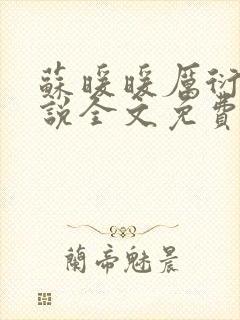 蘇暖暖厲衍
說全文免費
蘭帝魅晨